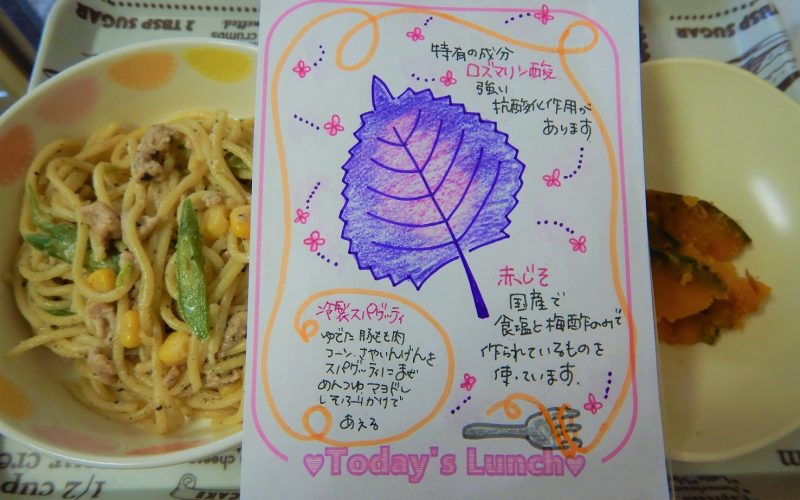 TBSP SUGAR
2 TBSP SUGAR
特有の成分
ロズマリン酸
強い
抗酸化作用が
あります
赤じそ
国産で
食塩と梅酢のみで
作られているものを
使っています.
冷製スパゲッティ
ゆでた豚もも肉
コーン.さやいんげんを
スパゲッティにまぜ
めんつゆ.マヨドレ
しそふりかけで
あえる
♥Today's Lunch♥
1/2 cup
CAKE